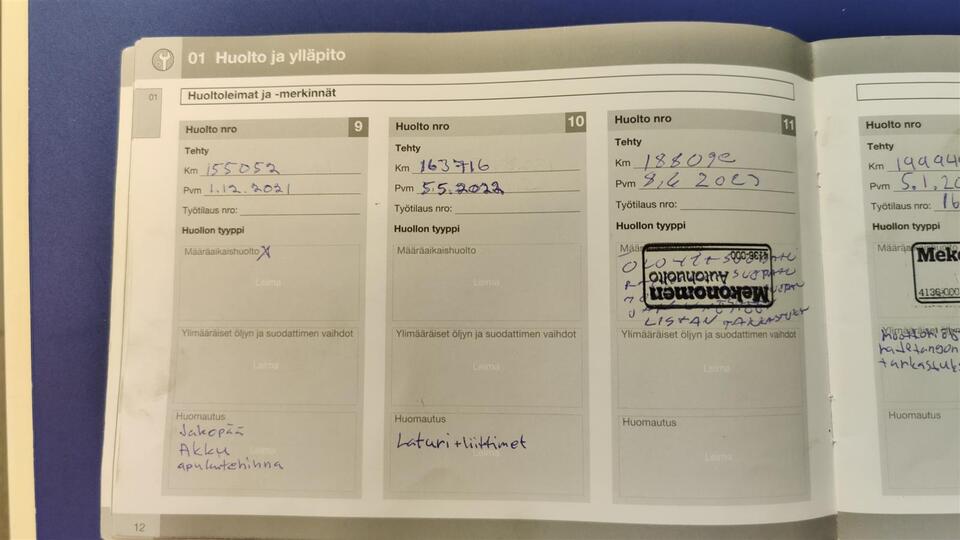 01 Huolto ja ylläpito
01
Huoltoleimat ja -merkinnät
Huolto nro 9
Tehty
Km 155052
Pvm 1.12.2021
Työtilaus nro:
Huollon tyyppi
Määräaikaishuolto X
Leima
Ylimääräiset öljyn ja suodattimen vaihdot
Leima
Huomautus
Jakopää
Akku
Leima
apulaitehihna
Huolto nro 10
Tehty
Km 163716
Pvm 5.5.2022
Työtilaus nro:
Huollon tyyppi
Määräaikaishuolto
Leima
Ylimääräiset öljyn ja suodattimen vaihdot
Leima
Huomautus
Laturi+liittimet
Leima
Huolto nro 11
Tehty
Km 188090
Pvm 8.6 2023
Työtilaus nro:
Huollon tyyppi
Mekonomen
Autohuolto
4136-000
LISTAN TARKASTUKS
Ylimääräiset öljyn ja suodattimen vaihdot
Leima
Huomautus
Leima
Huolto nro
Tehty
Km 19994
Pvm 5.1.20
Työtilaus nro: 16
Huollon tyyppi
Meko
4136-000
tarkastuks
Huomautus
12